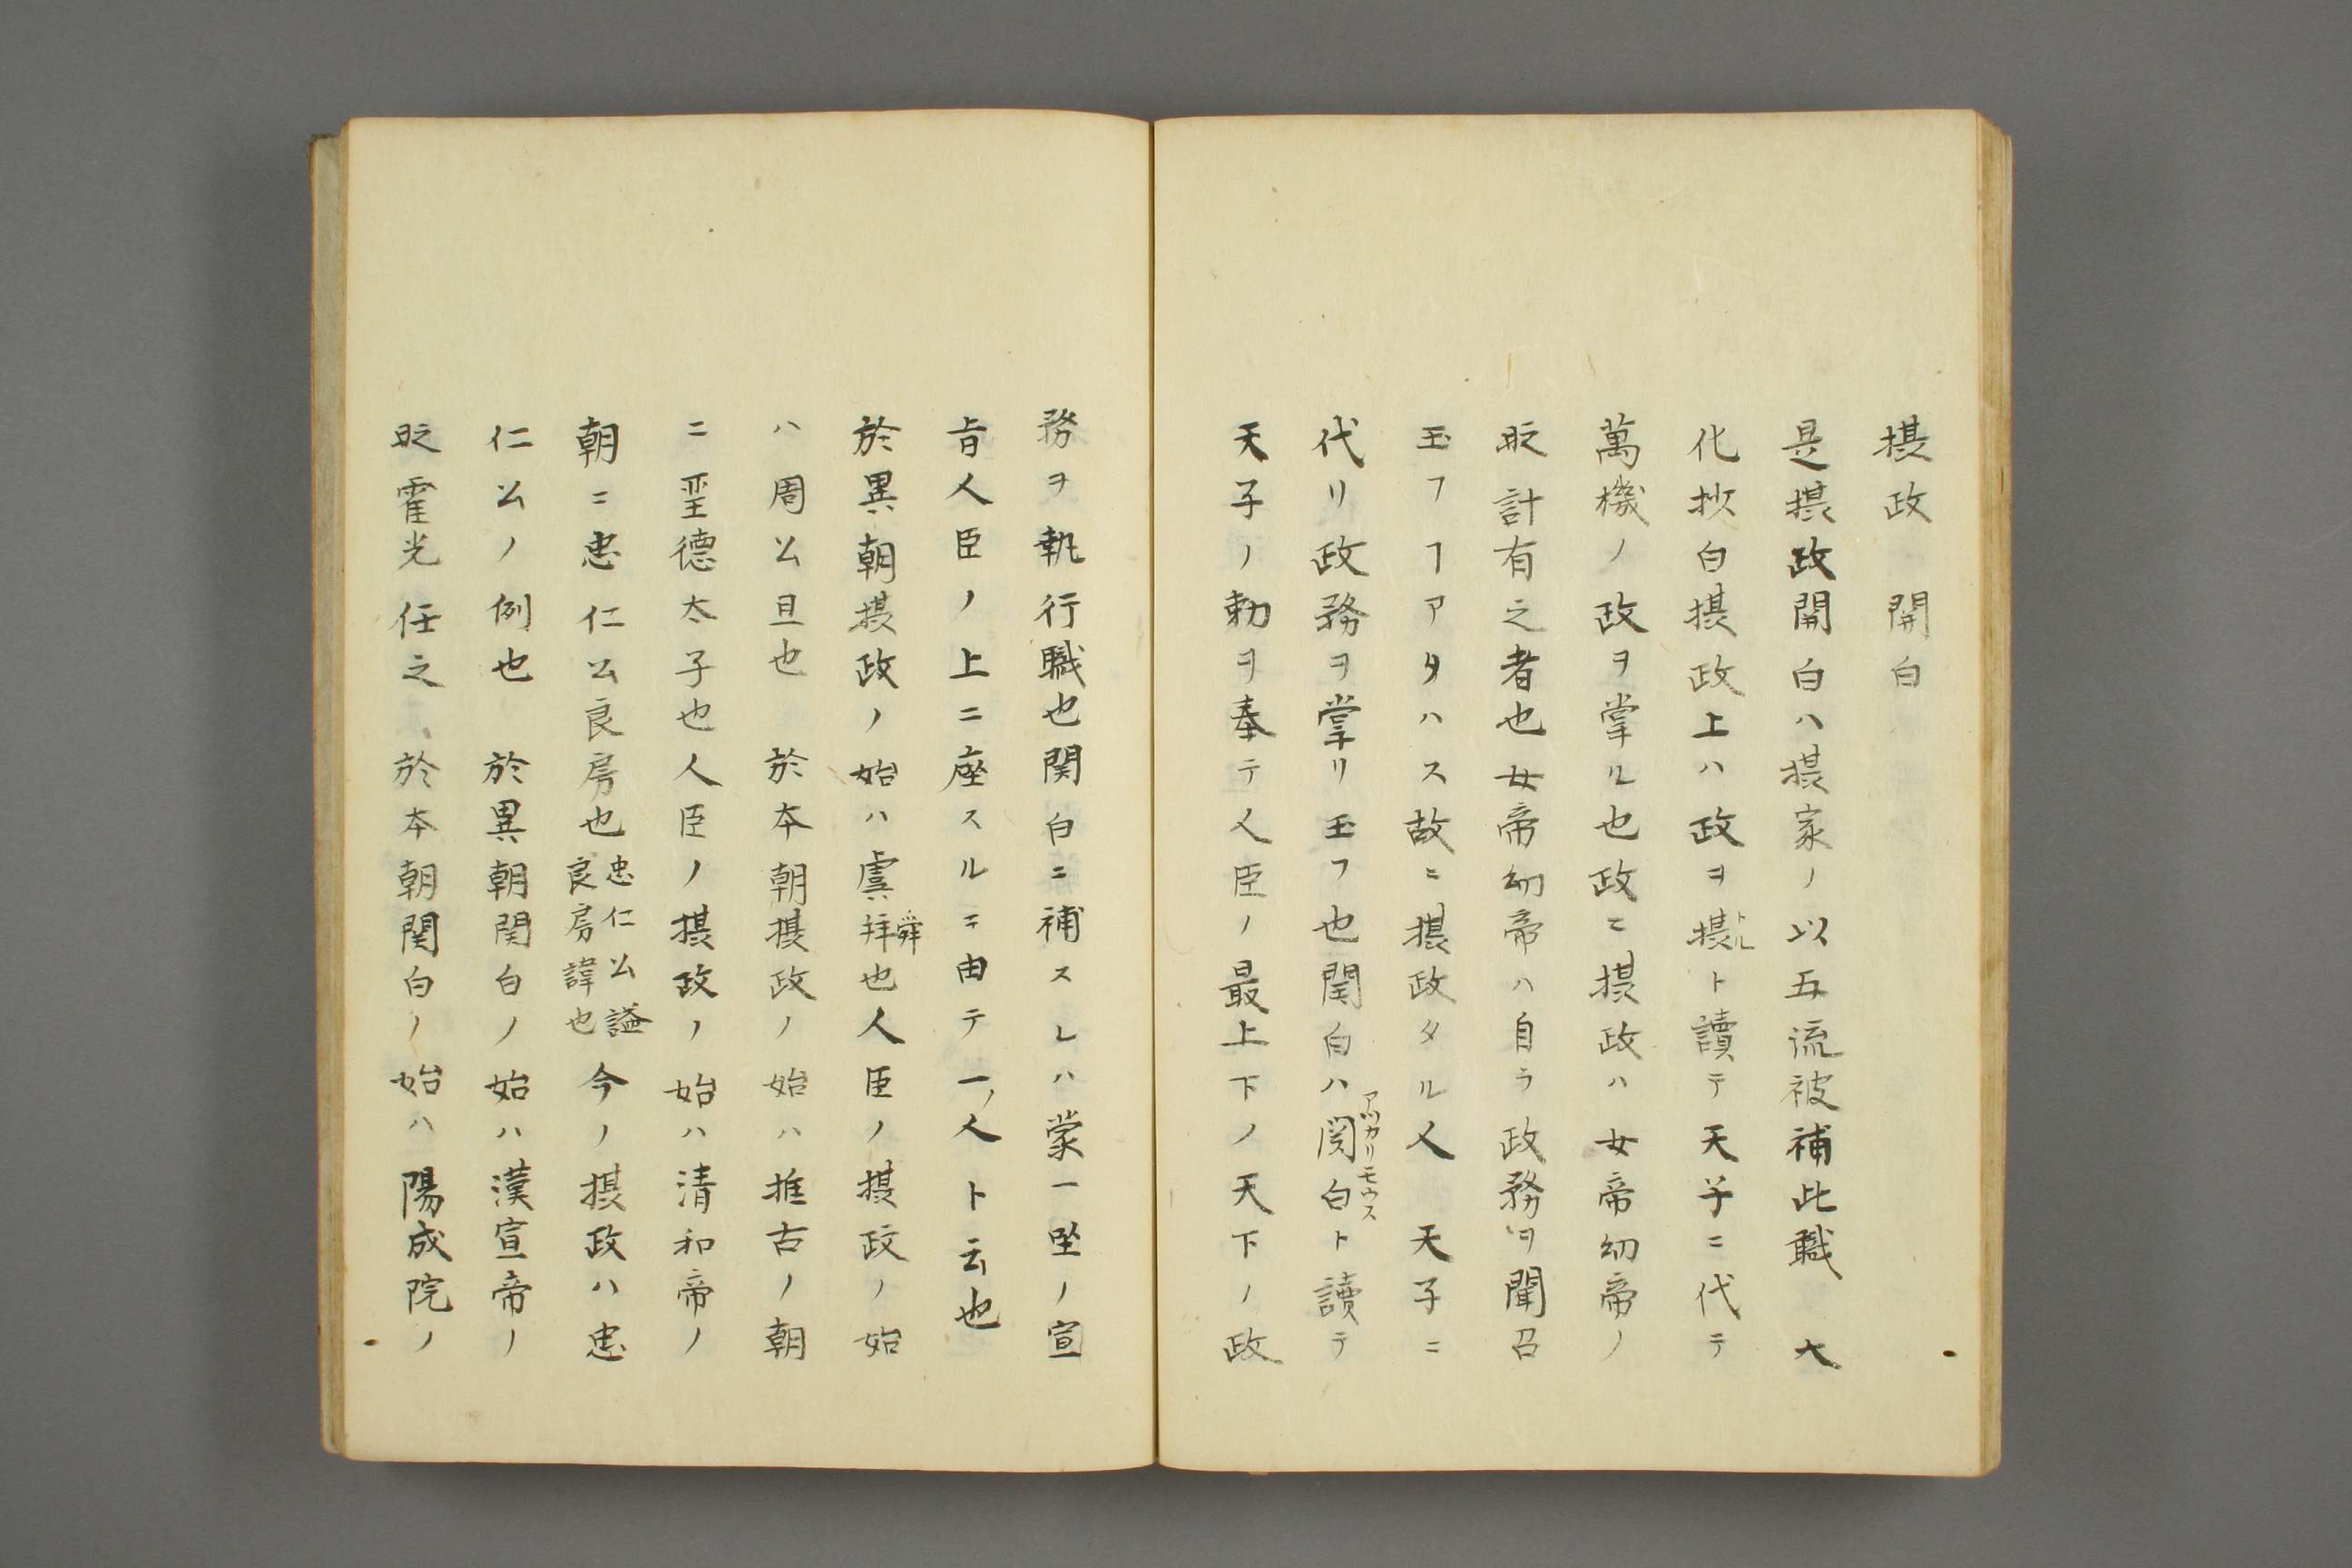 摂政　関白
是摂政関白ハ摂家ノ以五流被補此職　大
化抄曰摂政上ハ政ヲ摂トルト讀テ天子ニ代テ
萬機ノ政ヲ掌ル也政ニ摂政ハ女帝幼帝ノ
時計有之者也女帝幼帝ハ自ラ政務ヲ聞召
玉フヿアタハス故ニ摂政タル人　天子ニ
代リ政務ヲ掌リ玉フ也関白ハ関白アツカリモウスト讀テ
天子ノ勅ヲ奉テ人臣ノ最上下ノ天下ノ政
務ヲ執行職也関白ニ補スレハ蒙一坐ノ宣
旨人臣ノ上ニ座スルニ由テ一ノ人ト云也
於異朝摂政ノ始ハ虞舜也人臣ノ摂政ノ始
ハ周公旦也　於本朝摂政ノ始ハ推古ノ朝
ニ聖徳太子也人臣ノ摂政ノ始ハ清和帝ノ
朝ニ忠仁公良房也忠仁公謚良房諱也今ノ摂政ハ忠
仁公ノ例也　於異朝関白ノ始ハ漢宣帝ノ
時霍光任之、於本朝関白ノ始ハ陽成院ノ